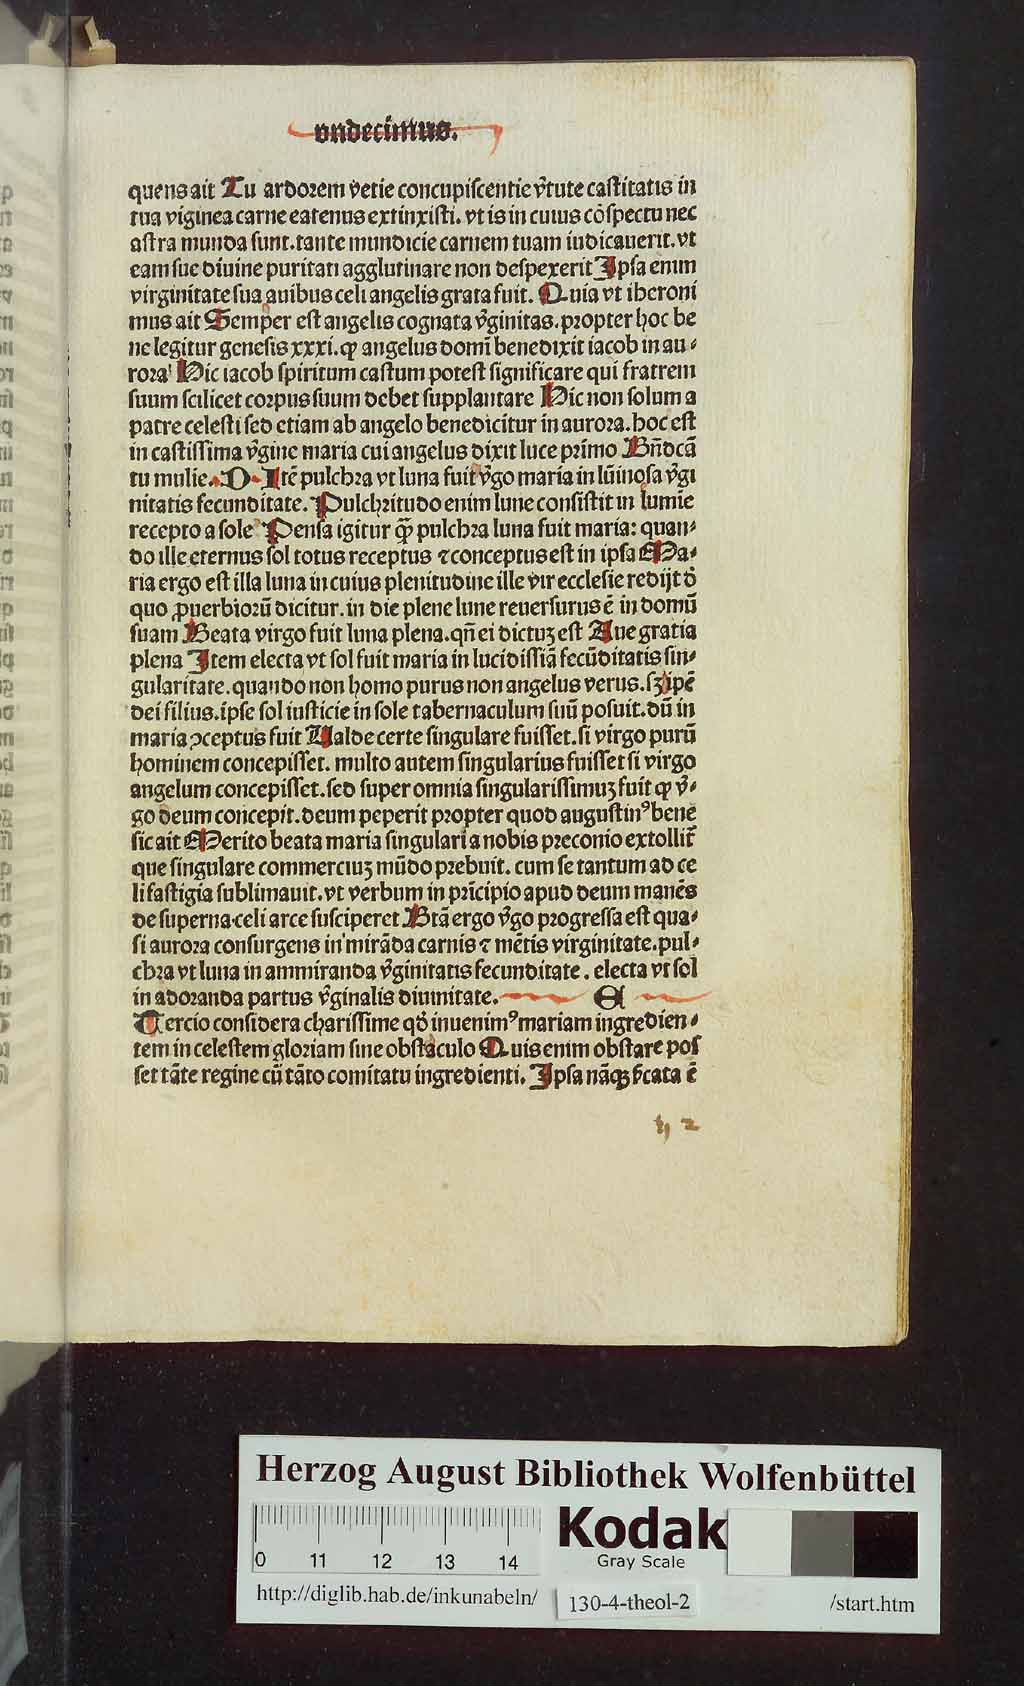 vndecimus.
quens ait Tu ardorem vetie concupiscentie v̓tute castitatis in
tua viginea carne eatenus extinxisti. vt is in cuius cōspectu nec
astra munda sunt. tante mundicie carnem tuam iudicauerit. vt
eam sue diuine puritati agglutinare non despexerit Ipsa enim
virginitate sua auibus celi angelis grata fuit. Quia vt iheroni
mus ait Semper est angelis cognata v̓ginitas. propter hoc be
ne legitur genesis xxxi. ꝙ angelus domī benedixit iacob in au-
rora Hic iacob spiritum castum potest significare qui fratrem
suum scilicet corpus suum debet supplantare Hic non solum a
patre celesti sed etiam ab angelo benedicitur in aurora. hoc est
in castissima v̓gine maria cui angelus dixit luce primo Bn̄dcā
tu mulie. D. Itē pulchra vt luna fuit v̓go maria in lūinosa v̓gi
nitatis fecunditate. Pulchritudo enim lune consistit in lumīe
recepto a sole Pensa igitur ꝙ̄ pulchra luna fuit maria: quan-
do ille eternus sol totus receptus ⁊ conceptus est in ipsa Ma-
ria ergo est illa luna in cuius plenitudine ille vir ecclesie redijt d̓
quo ꝓuerbiorū dicitur. in die plene lune reuersurus ē in domū
suam Beata virgo fuit luna plena. qn̄ ei dictuꝫ est Aue gratia
plena Item electa vt sol fuit maria in lucidissiā fecūditatis sin-
gularitate. quando non homo purus non angelus verus. sꝫ ipē
dei filius. ipse sol iusticie in sole tabernaculum suū posuit. dū in
maria ꝯceptus fuit Valde certe singulare fuisset. si virgo purū
hominem concepisset. multo autem singularius fuisset si virgo
angelum concepisset. sed super omnia singularissimuꝫ fuit ꝙ v̓-
go deum concepit. deum peperit propter quod augustinꝰ bene
sic ait Merito beata maria singulari a nobis preconio extollit̄
que singulare commerciuꝫ mūdo prebuit. cum se tantum ad ce
li fastigia sublimauit. vt verbum in prīcipio apud deum manēs
de superna celi arce susciperet Btā ergo v̓go progressa est qua-
si aurora consurgens in mirāda carnis ⁊ mētis virginitate. pul-
chra vt luna in ammiranda v̓ginitatis fecunditate. electa vt sol
in adoranda partus v̓ginalis diuinitate. E
Tercio considera charissime qd̓ inuenimꝰ mariam ingredien-
tem in celestem gloriam sine obstaculo Quis enim obstare pos
set tāte regine cū tāto comitatu ingredienti. Ipsa nāqꝫ v̓cata ē
h 2
Herzog August Bibliothek Wolfenbüttel
0 11 12 13 14
Kodak
Gray Scale
http://diglib.hab.de/inkunabeln/ 130-4-theol-2 /start.htm